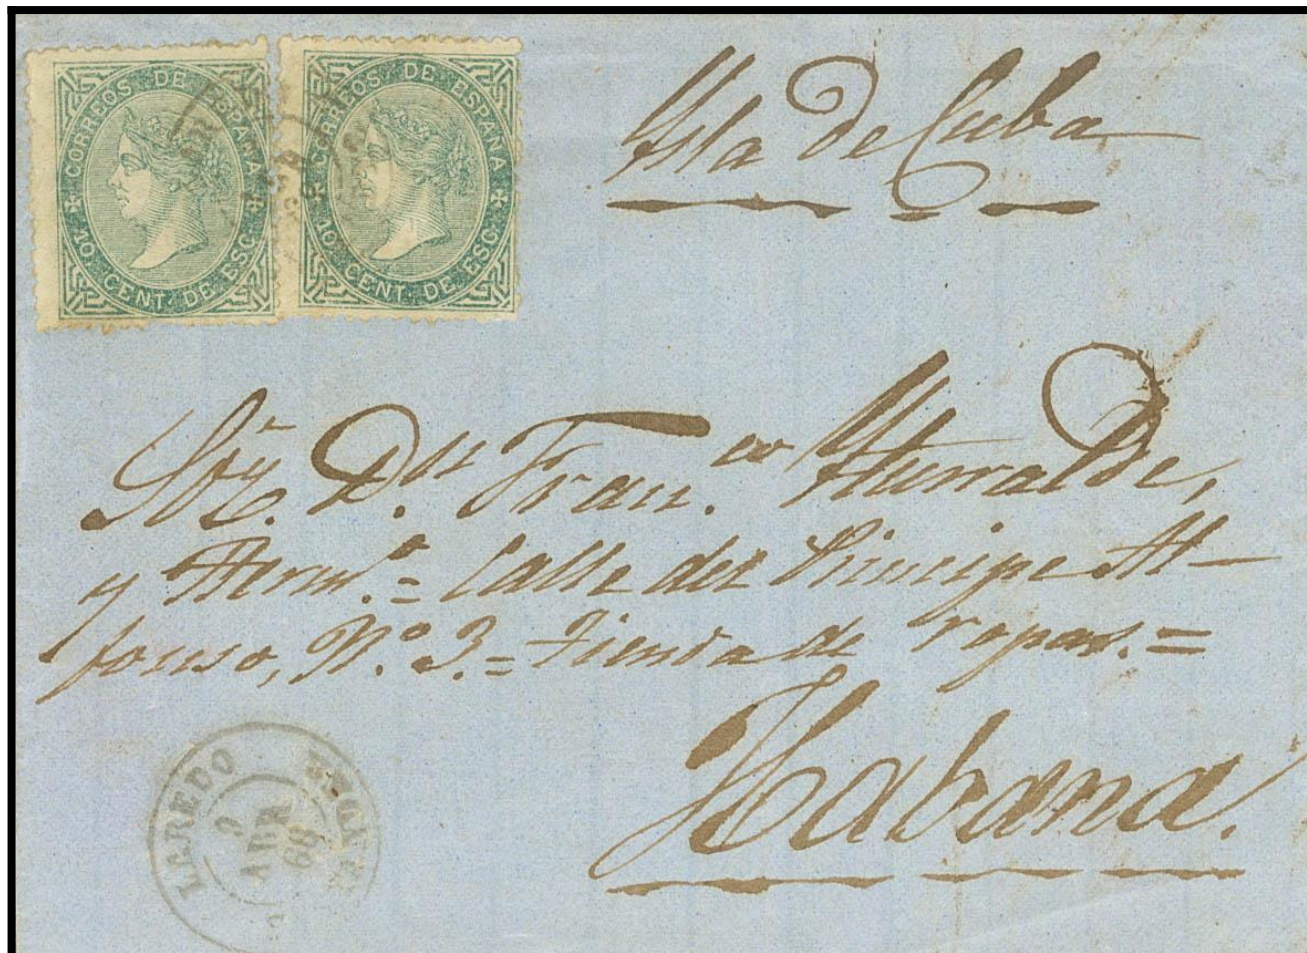 CORREOS DE ESPAÑA
10 CENT. DE ESC.
CORREOS DE ESPAÑA
10 CENT. DE ESC.
Ysla de Cuba
Sor. Dn. Franco. Yturralde,
y Hermo. = Calle del Principe Al-
fonso, No. 3. = Tienda de ropas. =
Habana.
LAREDO
9
ABR
68